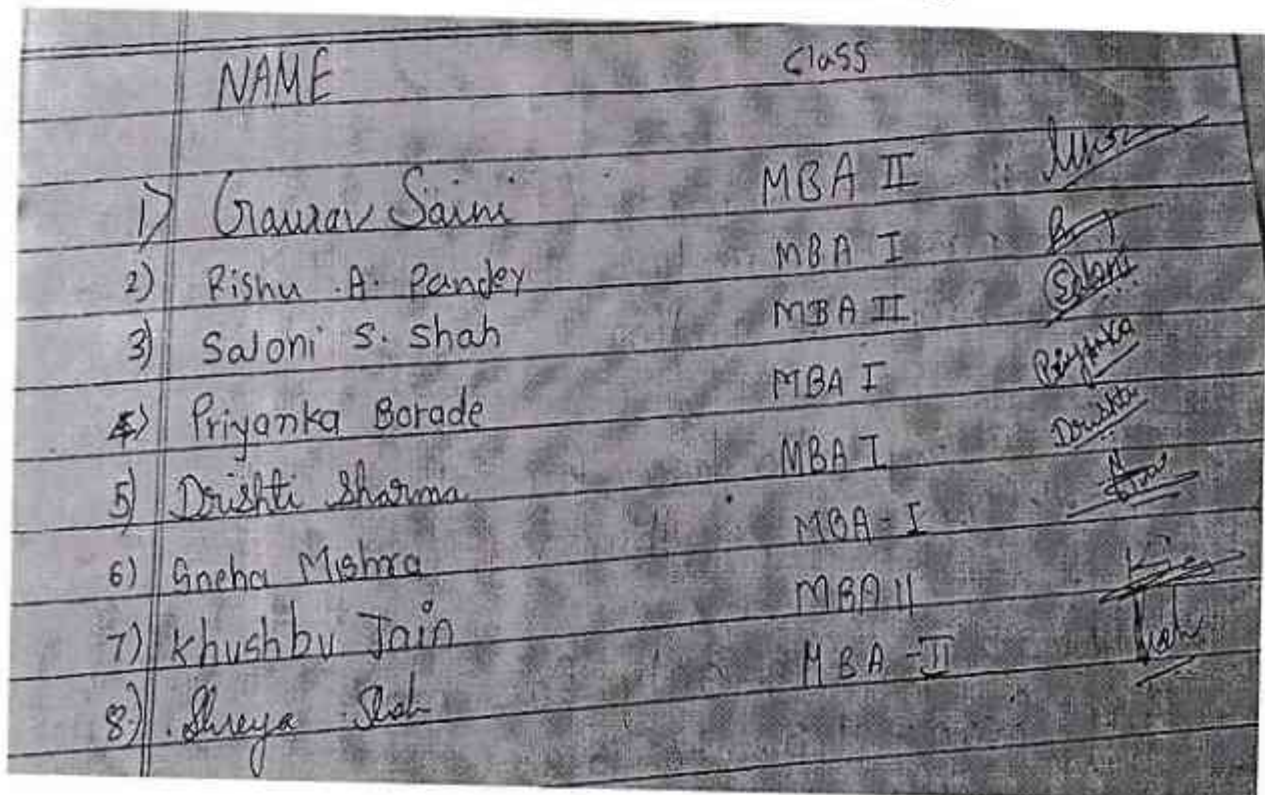 NAME Class
1) Gaurav Saini MBA II
2) Rishu .A. Pandey MBA I
3) Saloni S. Shah MBA II Saloni
4) Priyanka Borade MBA I Priyanka
5) Drishti Sharma MBA I Drishti
6) Sneha Mishra MBA-I
7) Khushbu Jain MBA II
8) Shreya Shah MBA-II